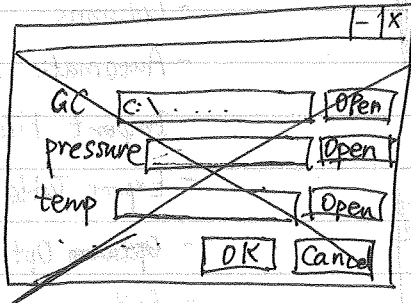 - X
GC C:\ .... Open
pressure Open
temp Open
OK Cancel